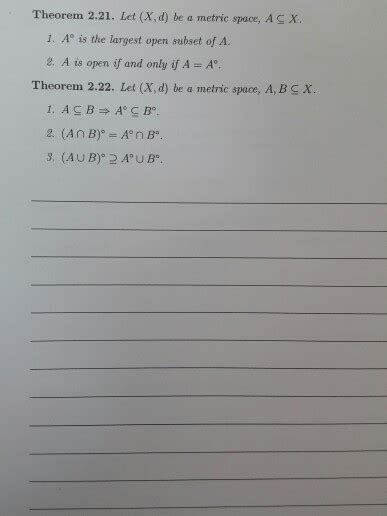 Theorem 2.21. Let (X, d) be a metric space, A ⊆ X.
1. A° is the largest open subset of A.
2. A is open if and only if A = A°.
Theorem 2.22. Let (X, d) be a metric space, A, B ⊆ X.
1. A ⊆ B ⇒ A° ⊆ B°.
2. (A ∩ B)° = A° ∩ B°.
3. (A ∪ B)° ⊇ A° ∪ B°.